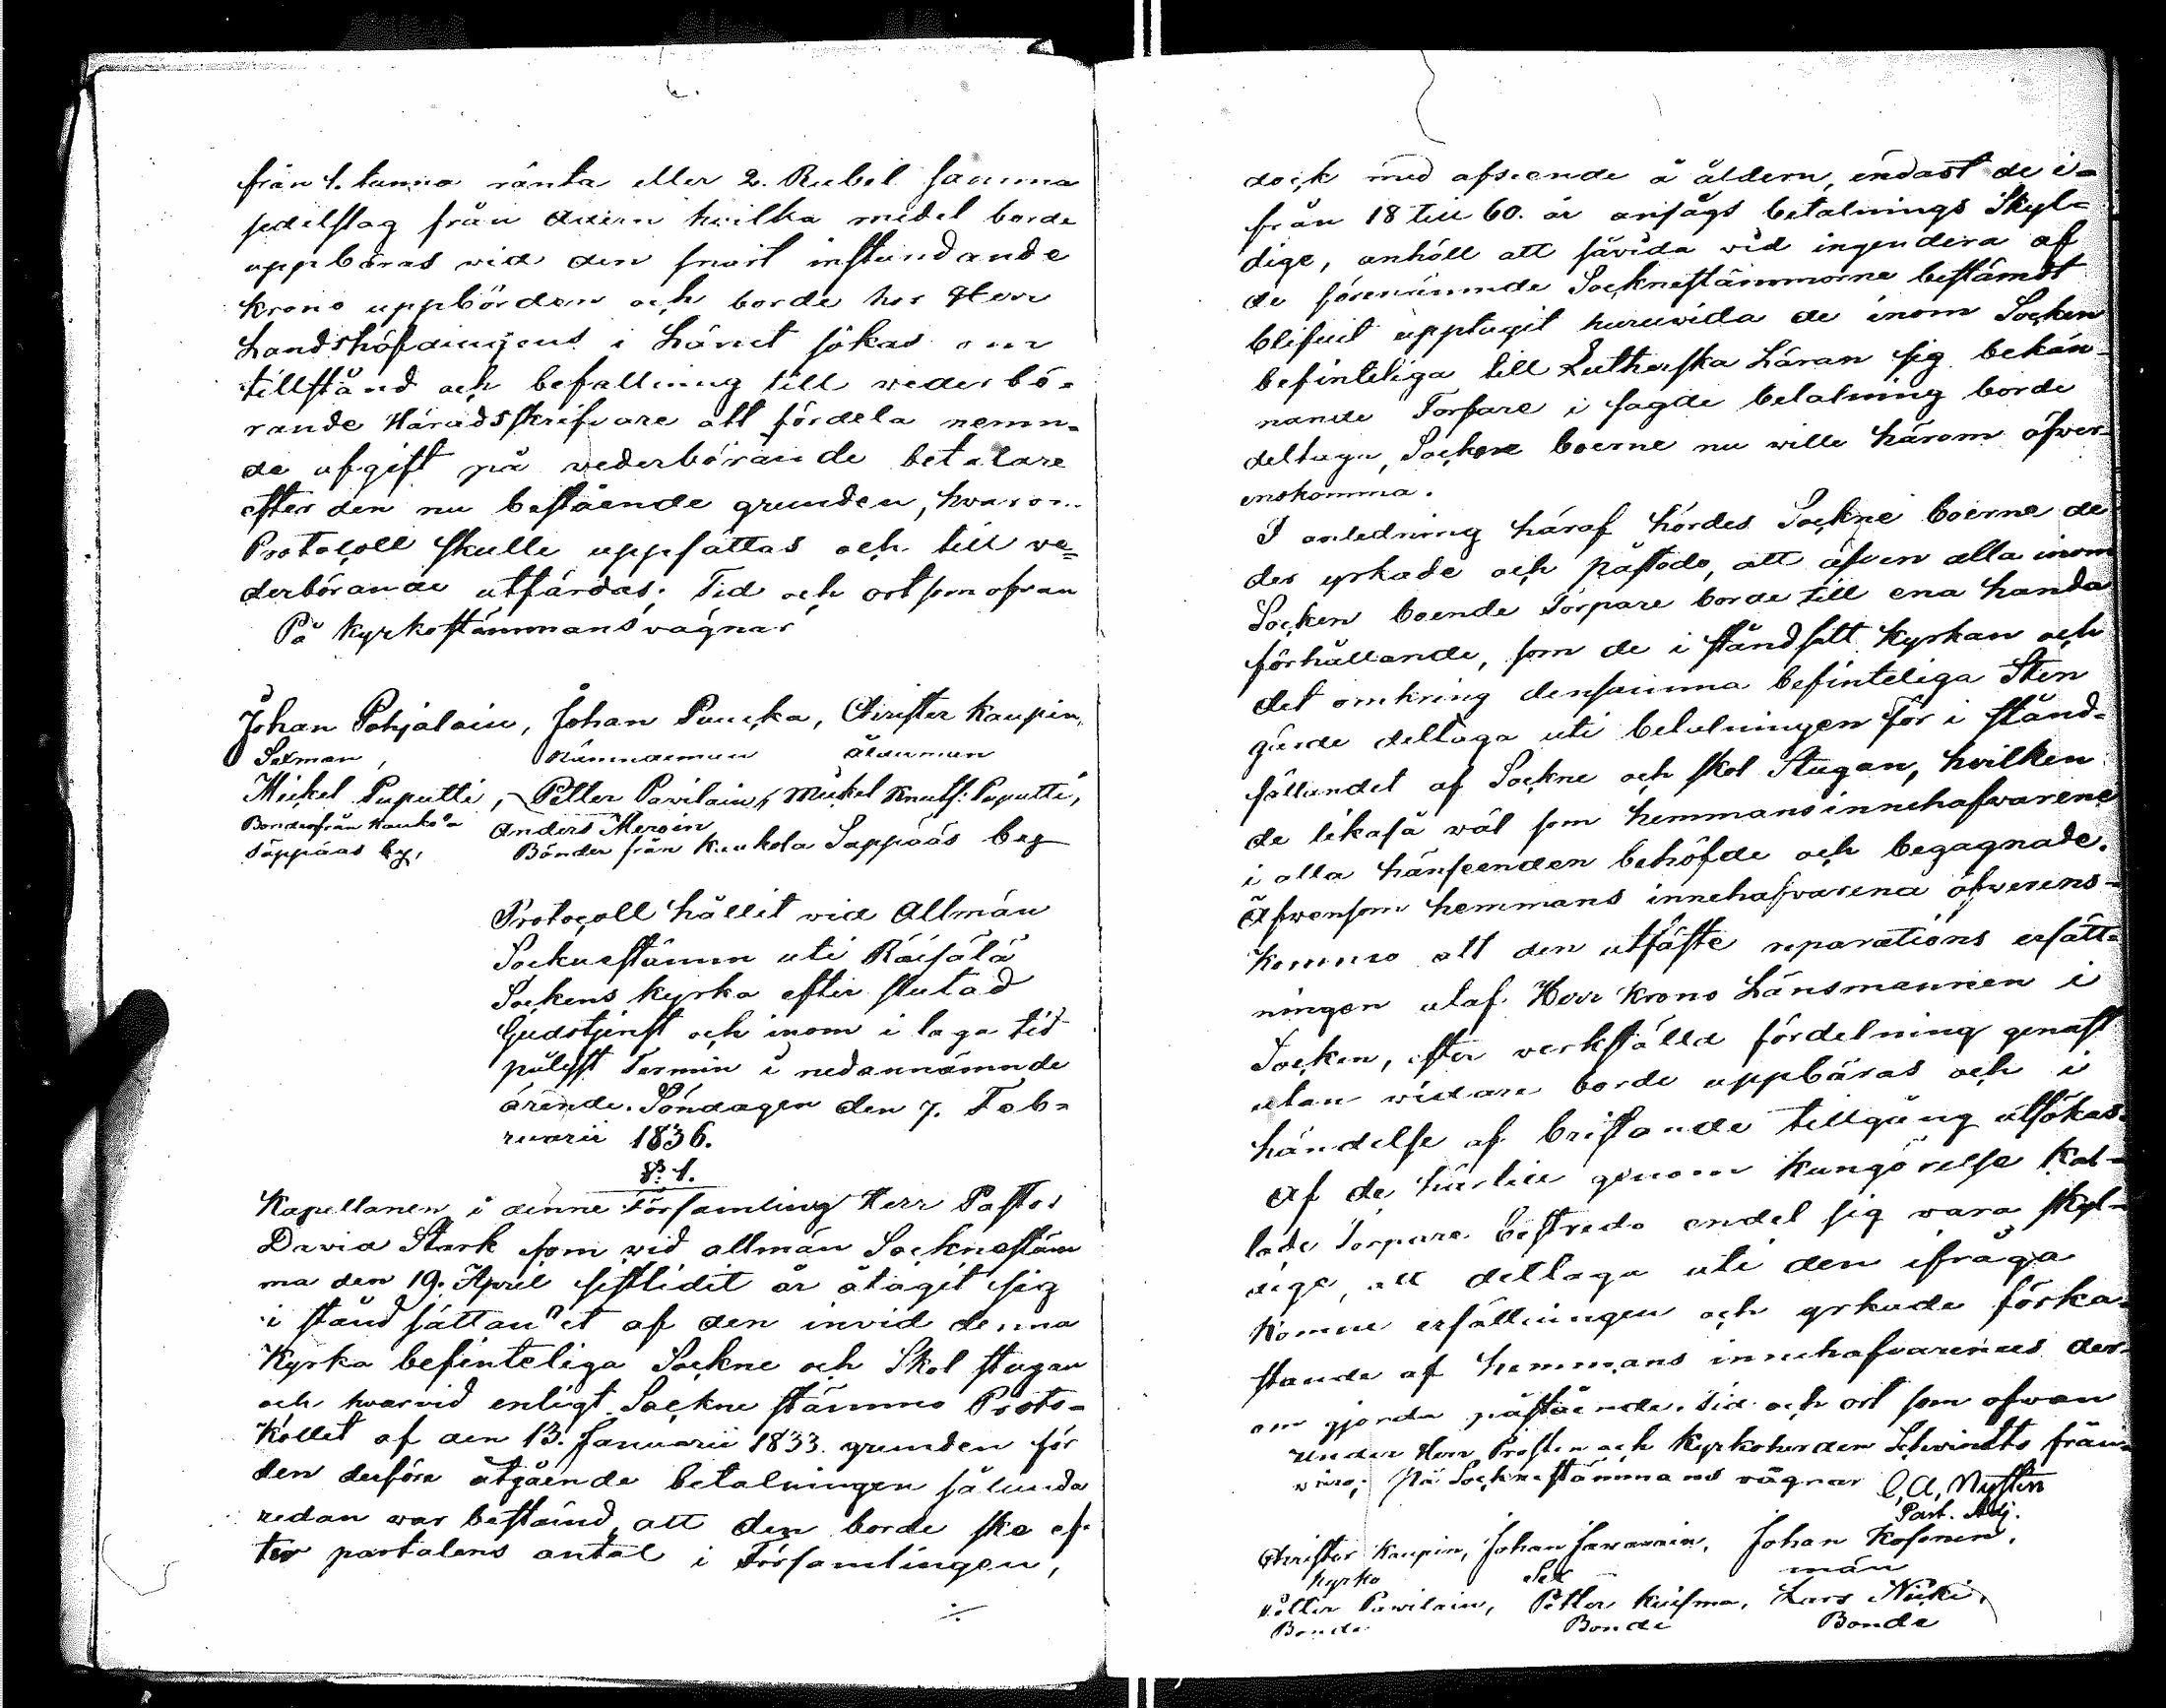 från 1. tunna ränta eller 2. Rubel samma
sedelslag från hvilka medel borde
uppbäras vid den snart instundande
krono uppbörden och borde hos Herr
Landshöfdingens i Länet sökas om
tillstånd och befallning till wederbö-
rande Häradsskrifvare att fördela nemn-
de afgift på wederbörande betalare
efter den nu bestående grunden, hvarom
Protocoll skulle uppsättas och till we-
derbörande utfärdas; Tid och ort som ofvan
På kyrkostämmans vägnar
Johan Pohjalain, Johan Puucka, Christer Kaupin,
Sexman, Nämndeman Ålderman
Mickel Puputti, Petter Pavilain, Mickel Knutss: Puputti,
Bonde från Kaukola Anders Meroin
Säppääs by, Bönder från Kaukola Sappääs by
Protocoll hållit vid Allmän
Socknestämm uti Räisälä
Sockens kyrka efter slutad
Gudstjenst och inom i laga tid
pålyst Termin i nedannämnde
ärende. Söndagen den 7. Feb-
ruarii 1836.
§: 1.
Kapellanen i denne Församling Herr Pastor
David Stark som vid allmän Socknestäm
ma den 19. April sistlidit år åtagit sig
i stånd sättandet af den invid denna
Kyrka befinteliga Sockne och Skol stugan
och hvarvid enligt Sockne stämmo Proto-
kollet af den 13. Januarii 1833. grunden för
den derföre utgående betalningen sålunda
redan war bestämd, att den borde ske ef-
ter partalens antal i Församlingen,
dock med afseende å åldern, endast de i
från 18 till 60. år ansågs betalnings skyl-
dige, anhöll att såvida vid ingendera af
de förenämnde Socknestämmorne bestämdt
blifvit upptagit huruvida de inom Socken
befinteliga till Lutherska Läran sig bekän-
nande Torpare i sagde betalning borde
deltaga, Sockne boerne nu wille härom öfwer-
enskomma.
I anledning häraf hördes Sockne boerne de
der yrkade och påstodo, att äfven alla inom
Socken boende Torpare borde till ena handa
förhållande, som de i ståndsatt kyrkan och
det omkring densamma befinteliga Sten
gärde deltaga uti betalningen för i stånd-
sättandet af Sockne och skol Stugan, hvilken
de likaså wäl som hemmansinnehafwarene
i alla hänseenden behöfde och begagnade.
Äfwensom hemmans innehafvarena öfwerens-
kommo att den utfäste reparations ersätt-
ningen utaf Herr Krono Länsmannen i
Socken, efter verkställd fördelning genast
utan widare borde uppbäras och i
händelse af bristande tillgång utsökas.
Af de härtill genom kungörelse kal-
lade Torpare bestredo endel sig vara skyl-
dige, att deltaga uti den ifråga
komne ersättningen och yrkade förka-
stande af hemmans innehafvarenas der-
om gjorda påstående. Tid och ort som ofwan
under Herr Prosten och Kyrkoherden Schwindts från-
wäro; På Socknestämmans vägnar C. A. Nystén
Past. Adj.
Christer Kaupin, Johan Johan Kosonen,
Kyrko Sex män
Petter Pavilain, Petter Kuisma, Lars Nicki,
Bonde Bonde Bonde